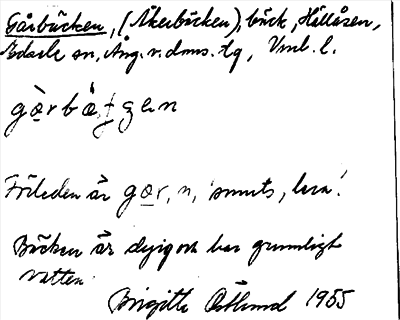 Gårbäcken, (Åkerbäcken), bäck, Hällåsen,
Edsele sn, Ång. n. doms. tg, Vml. l.
gœrbäƫʒen
Förleden är gœr, n, 'smuts, lera'.
Bäcken är dyig och har grumligt
vatten.
Birgitte Östlund 1955